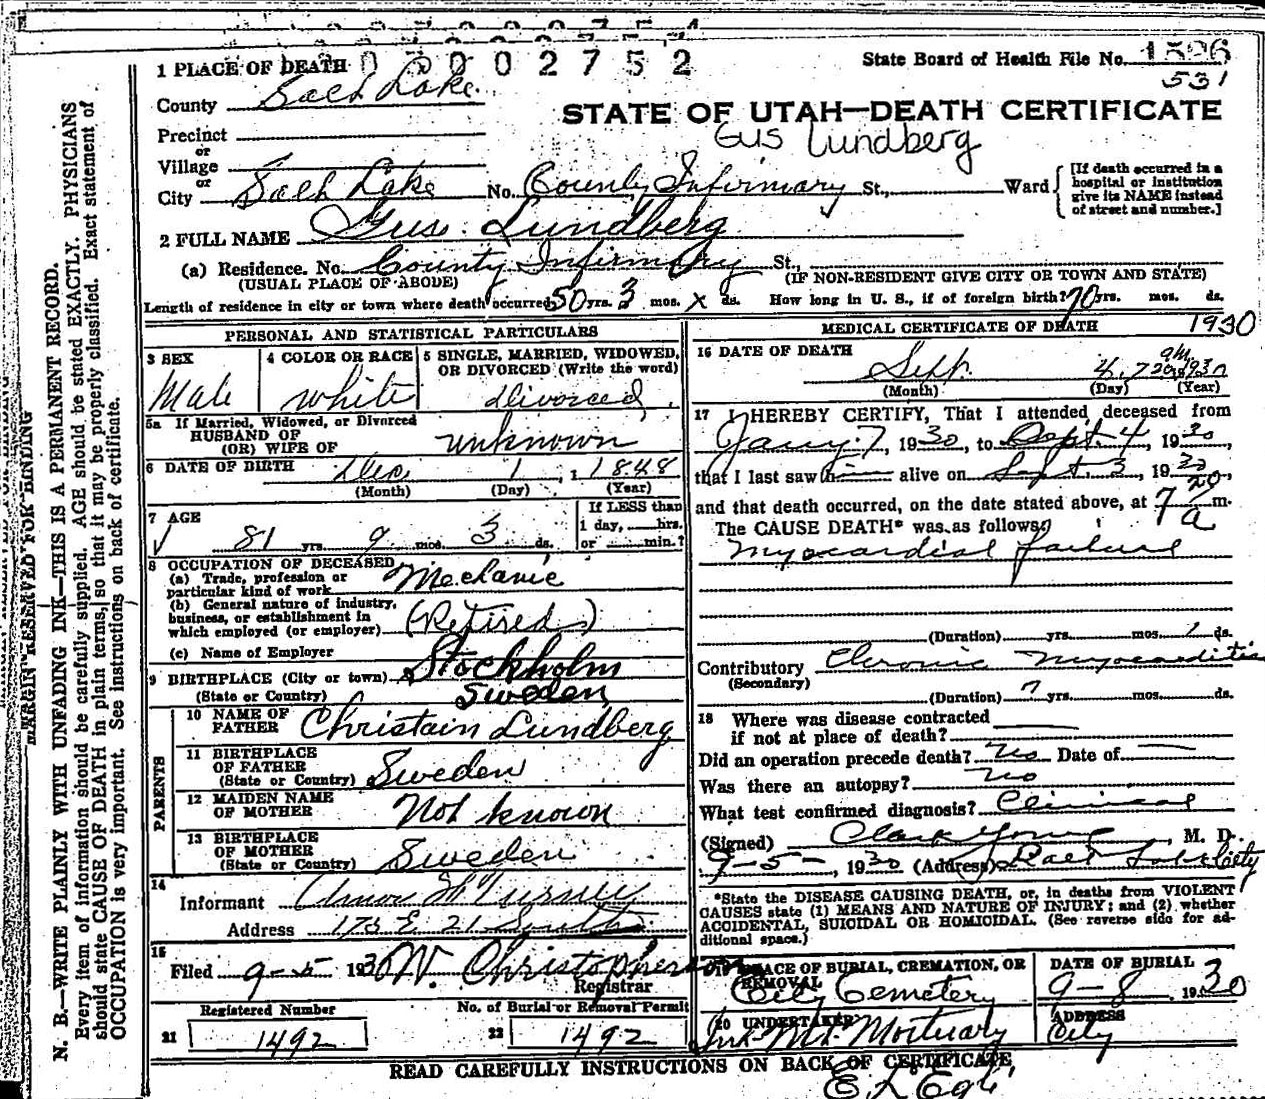 0 7 0 0 0 2 7 5 2
State Board of Health File No. 1596
531
1 PLACE OF DEATH
County Salt Lake
STATE OF UTAH—DEATH CERTIFICATE
Gus Lundberg
Precinct
or
Village
or
City Salt Lake No. County Infirmary St., Ward
[If death occurred in a hospital or institution give its NAME instead of street and number.]
2 FULL NAME Gus. Lundberg
(a) Residence. No. County Infirmary St.,
(USUAL PLACE OF ABODE) (IF NON-RESIDENT GIVE CITY OR TOWN AND STATE)
Length of residence in city or town where death occurred 50 yrs. 3 mos. x ds. How long in U. S., if of foreign birth? 70 yrs. mos. ds.
PERSONAL AND STATISTICAL PARTICULARS
3 SEX
Male
4 COLOR OR RACE
white
5 SINGLE, MARRIED, WIDOWED, OR DIVORCED (Write the word)
divorced
5a If Married, Widowed, or Divorced
HUSBAND OF
(OR) WIFE OF unknown
6 DATE OF BIRTH Dec 1, 1848
(Month) (Day) (Year)
7 AGE
81 yrs. 9 mos. 3 ds.
If LESS than
1 day, hrs.
or min.?
8 OCCUPATION OF DECEASED
(a) Trade, profession or particular kind of work Mechanic
(b) General nature of industry, business, or establishment in which employed (or employer) (Retired)
(c) Name of Employer
9 BIRTHPLACE (City or town) Stockholm
(State or Country) Sweden
PARENTS
10 NAME OF FATHER Christain Lundberg
11 BIRTHPLACE OF FATHER
(State or Country) Sweden
12 MAIDEN NAME OF MOTHER Not known
13 BIRTHPLACE OF MOTHER
(State or Country) Sweden
14
Informant
Address 173 E 21 South
15
Filed 9-5 1930 W. Christopherson
Registrar
Registered Number
21 1492
No. of Burial or Removal Permit
22 1492
MEDICAL CERTIFICATE OF DEATH 1930
16 DATE OF DEATH
Sept. 4, 7 20 am 1930
(Month) (Day) (Year)
17 I HEREBY CERTIFY, That I attended deceased from
Jany. 7, 1930, to Sept. 4, 1930,
that I last saw him alive on Sept 3, 1930
and that death occurred, on the date stated above, at 7 20 a m.
The CAUSE DEATH* was as follows:
myocardial failure
(Duration) yrs. mos. 1 ds.
Contributory Chronic myocarditis
(Secondary)
(Duration) ? yrs. mos. ds.
18 Where was disease contracted
if not at place of death?
Did an operation precede death? no Date of
Was there an autopsy? no
What test confirmed diagnosis? Clinical
(Signed) Clark Young M. D.
9-5-, 1930 (Address) Salt Lake City
*State the DISEASE CAUSING DEATH, or, in deaths from VIOLENT
CAUSES state (1) MEANS AND NATURE OF INJURY; and (2) whether
ACCIDENTAL, SUICIDAL OR HOMICIDAL. (See reverse side for additional space.)
19 PLACE OF BURIAL, CREMATION, OR REMOVAL
City Cemetery
DATE OF BURIAL
9-8, 1930
20 UNDERTAKER
Mortuary
ADDRESS
City
READ CAREFULLY INSTRUCTIONS ON BACK OF CERTIFICATE
E. L. Egli
MARGIN RESERVED FOR BINDING
N. B.—WRITE PLAINLY WITH UNFADING INK—THIS IS A PERMANENT RECORD.
Every item of information should be carefully supplied. AGE should be stated EXACTLY. PHYSICIANS
should state CAUSE OF DEATH in plain terms, so that it may be properly classified. Exact statement of
OCCUPATION is very important. See instructions on back of certificate.